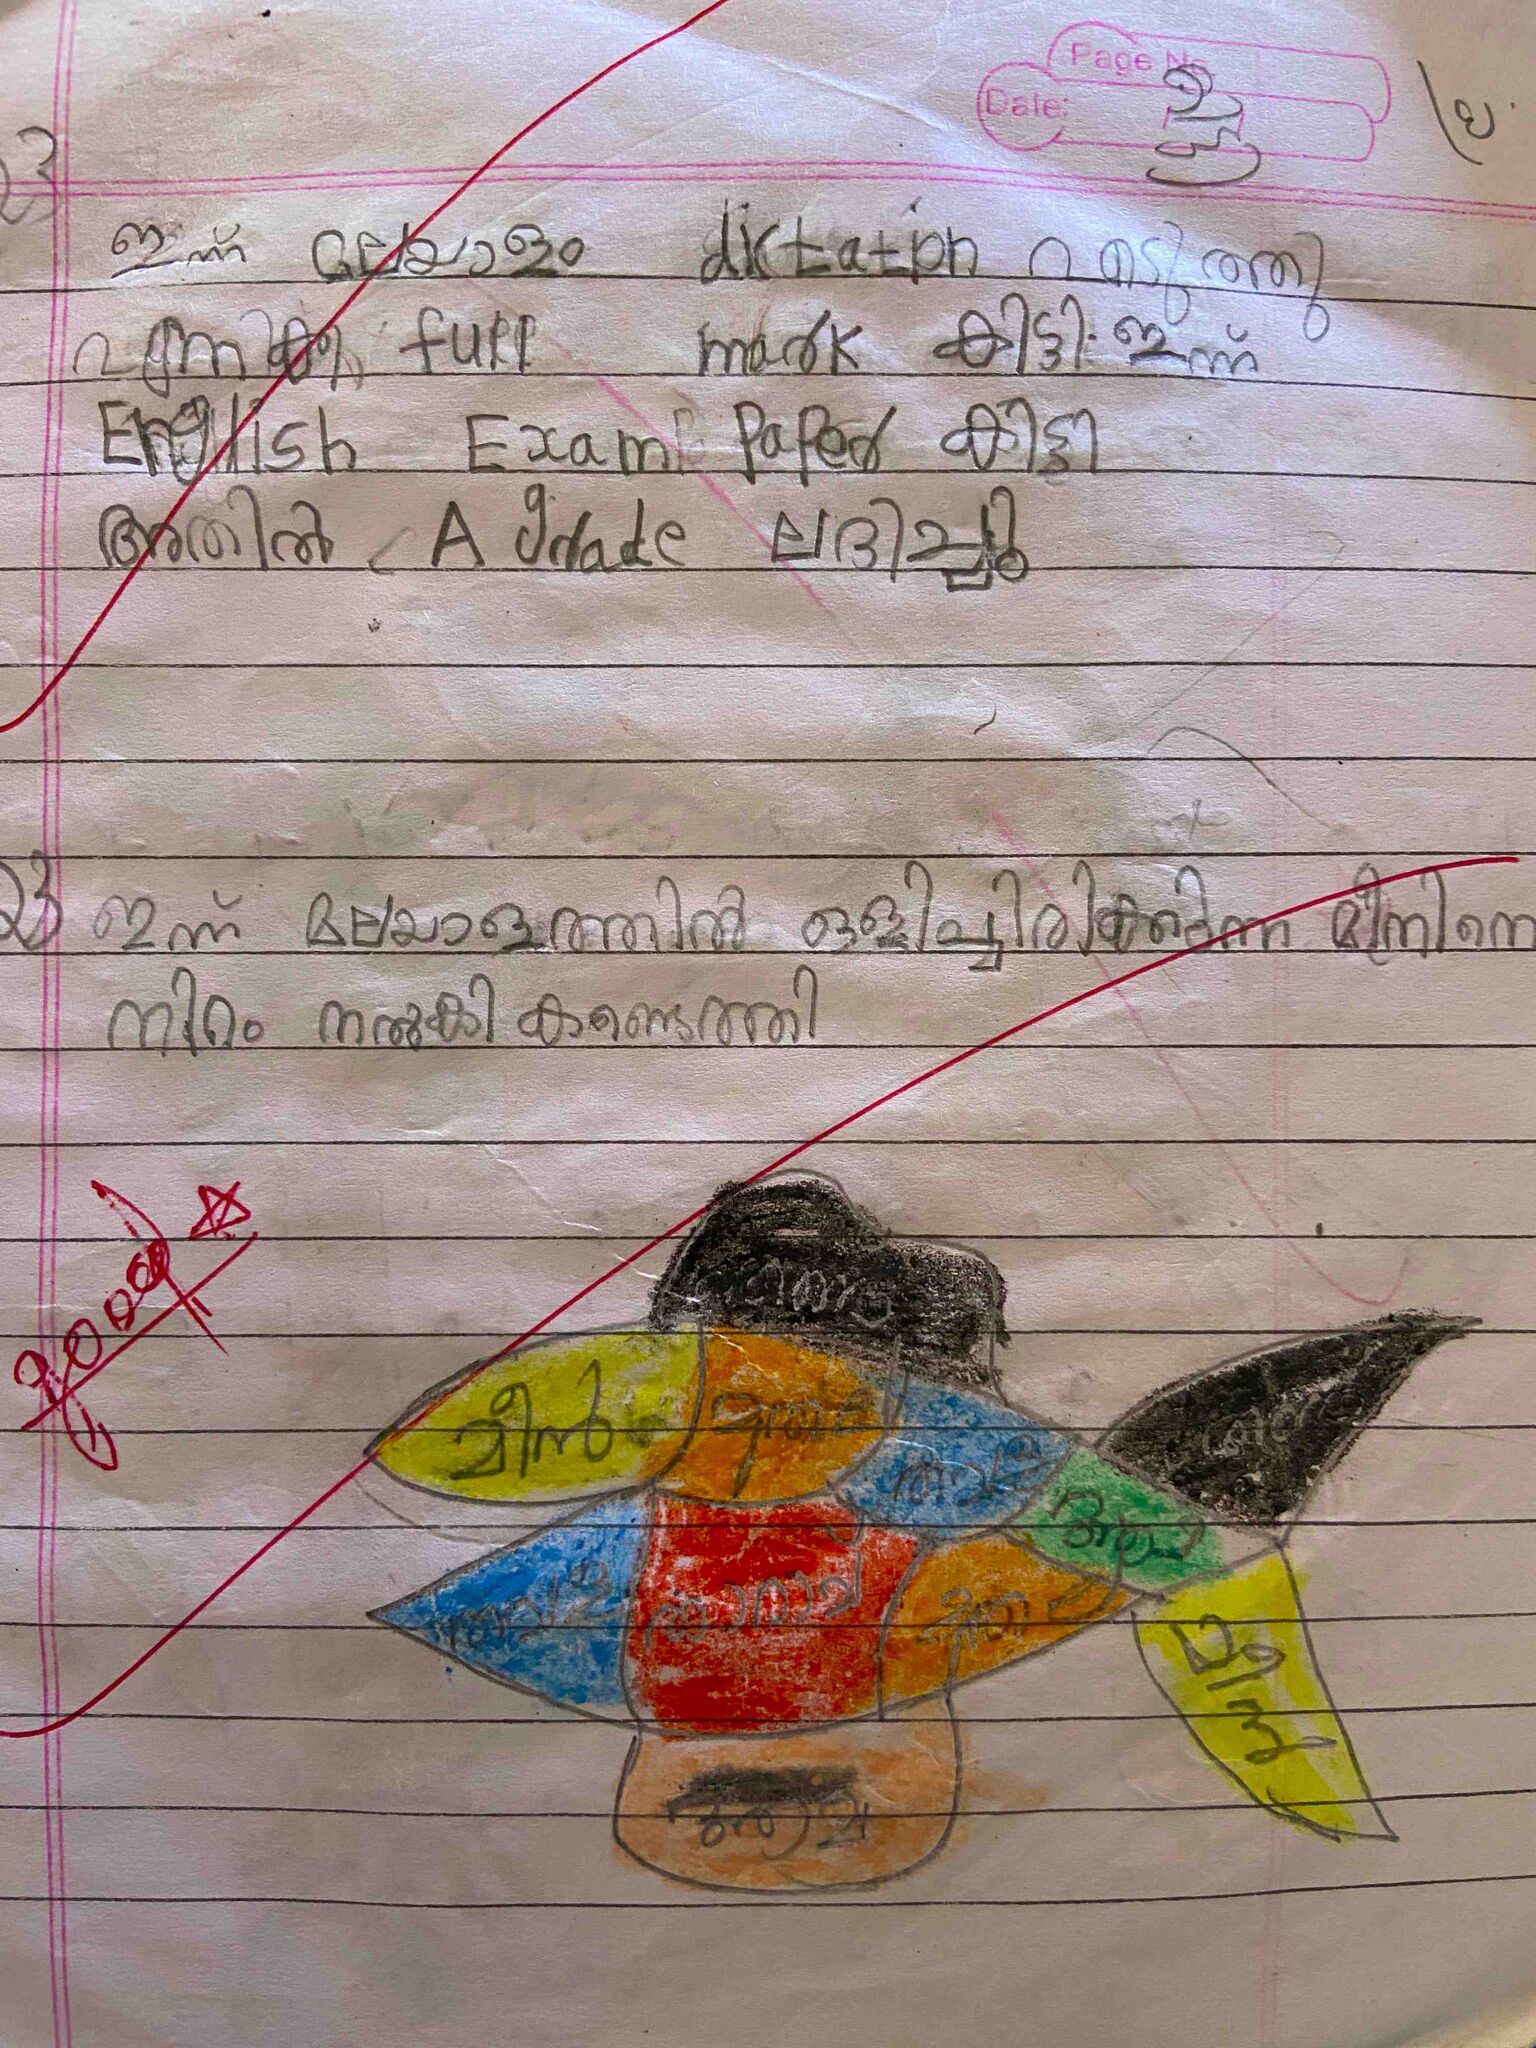 Page No.
Date:
ഇന്ന് മലയാളം dictation എടുത്തു
എനിക്കു full mark കിട്ടി. ഇന്ന്
English Exam Paper കിട്ടി
അതിൽ A grade ലഭിച്ചു
ഇന്ന് മലയാളത്തിൽ ഒളിച്ചിരിക്കുന്ന മീനിനെ
നിറം നൽകി കണ്ടെത്തി
good
മീൻ
തവള
തവള
താറാവ്
ആമ